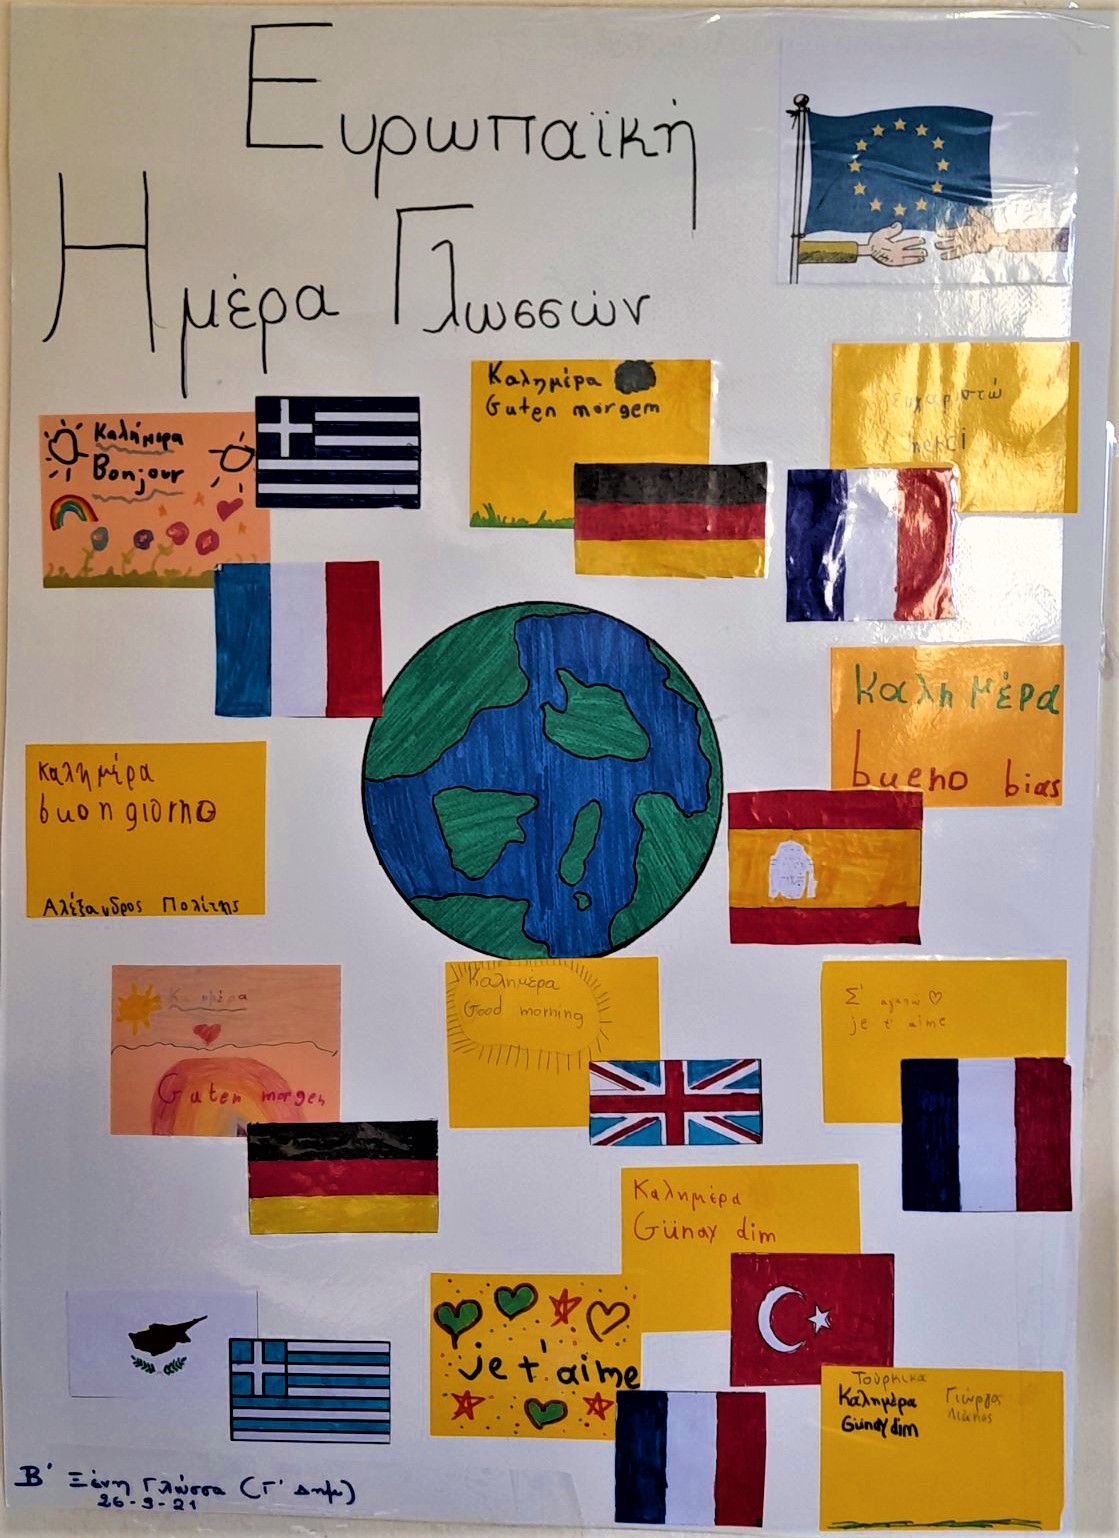 Ευρωπαϊκή
Ημέρα Γλωσσών
Καλημέρα
Bonjour
Καλημέρα
Guten morgem
Ευχαριστώ
merci
Καλημέρα
bueno bias
Καλημέρα
buon giorno
Αλέξανδρος Πολίτης
Καλημέρα
Guten morgen
Καλημέρα
Good morning
Σ' αγαπώ
je t' aime
Καλημέρα
Günay dim
je t'aime
Τούρκικα
Καλημέρα
Günay dim
Γιώργος
Β' Ξένη Γλώσσα (Γ' Δημ)
26-9-21